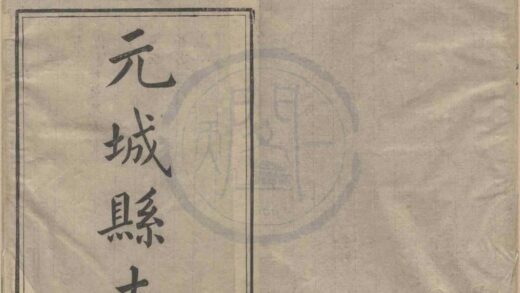 元城縣